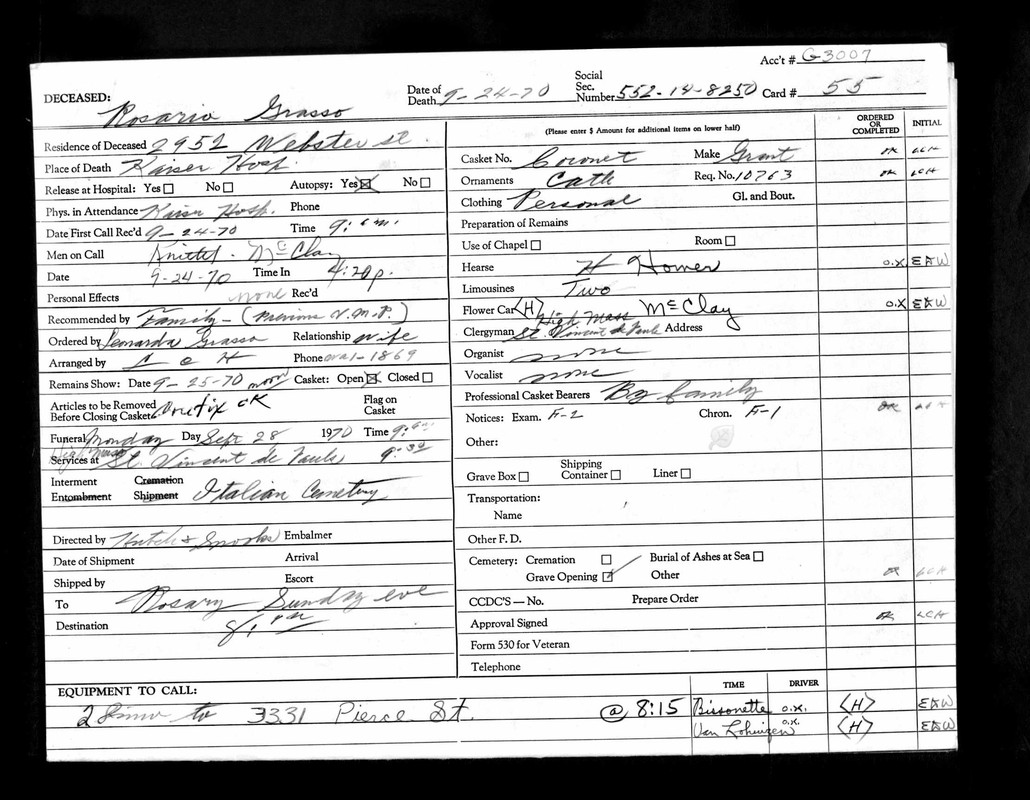 Acc't # G-3007
DECEASED: Rosario Grasso
Date of Death 9-24-70
Social Sec. Number 552-14-8250
Card # 55
Residence of Deceased 2952 Webster st.
Place of Death Kaiser Hosp.
Release at Hospital: Yes No Autopsy: Yes No
Phys. in Attendance Kaiser Hosp. Phone
Date First Call Rec'd 9-24-70 Time 9:
Men on Call Knittel - McClay
Date 9-24-70 Time In 4:20p.
Personal Effects none Rec'd
Recommended by Family - (Previous V.M.P.)
Ordered by Leonarda Grasso Relationship wife
Arranged by L C H Phone 1-1869
Remains Show: Date 9-25-70 noon Casket: Open Closed
Articles to be Removed Before Closing Casket OK
Flag on Casket
Funeral Monday Day Sept 28 1970 Time 9:
High Mass
Services at St. Vincent de Pauls 9:30
Interment Cremation
Entombment Shipment Italian Cemetery
Directed by Hutch & Embalmer
Date of Shipment Arrival
Shipped by Escort
To Rosary Sunday eve
Destination 8: pm
(Please enter $ Amount for additional items on lower half)
ORDERED OR COMPLETED
INITIAL
Casket No. Coronet Make Grant OK LCH
Ornaments Cath Req. No. 10763 OK LCH
Clothing Personal Gl. and Bout.
Preparation of Remains
Use of Chapel Room
Hearse H Homer O.K. EAW
Limousines Two
Flower Car <H> McClay O.K. EAW
High Mass
Clergyman St. Vincent de Pauls Address
Organist none
Vocalist none
Professional Casket Bearers By family
Notices: Exam. F-2 Chron. F-1 OK LCH
Other:
Grave Box Shipping Container Liner
Transportation:
Name
Other F. D.
Cemetery: Cremation Burial of Ashes at Sea
Grave Opening Other OK LCH
CCDC'S — No. Prepare Order
Approval Signed OK LCH
Form 530 for Veteran
Telephone
EQUIPMENT TO CALL:
TIME DRIVER
2 Limo to 3331 Pierce St. @ 8:15 Bissonette O.K. <H> EAW
Van Lohuizen O.K. <H> EAW